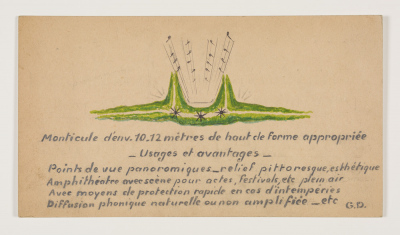 Monticule d'env. 10.12 mètres de haut de forme appropriée
_ Usages et avantages _
Points de vue panoramiques_relief pittoresque, esthétique
Amphithéatre avec scène pour actes, festivals, etc plein air
Avec moyens de protection rapide en cas d'intemperies
Diffusion phonique naturelle ou non amplifiée _ etc G.D.